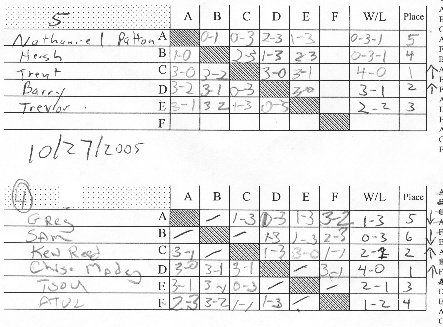 5 A B C D E F W/L Place
Nathaniel Patton A 0-1 0-3 2-3 1-3 0-3-1 5
Hersh B 1-0 2-3 1-3 2-3 0-3-1 4
Trent C 3-0 3-2 3-0 3-1 4-0 1
Barry D 3-2 3-1 0-3 3-0 3-1 2
Trevor E 3-1 3-2 1-3 0-3 2-2 3
F
10/27/2005
4 A B C D E F W/L Place
Greg A / 1-3 0-3 1-3 3-2 1-3 5
Sam B / / 1-3 1-3 2-3 0-3 6
Ken C 3-1 / 1-3 3-0 1-1 2
D 3-0 3-1 3-1 / 3-1 4-0 1
E 3-1 3-1 0-3 / 2-1 3
ATUL F 2-3 3-2 1-1 1-3 / 1-2 4